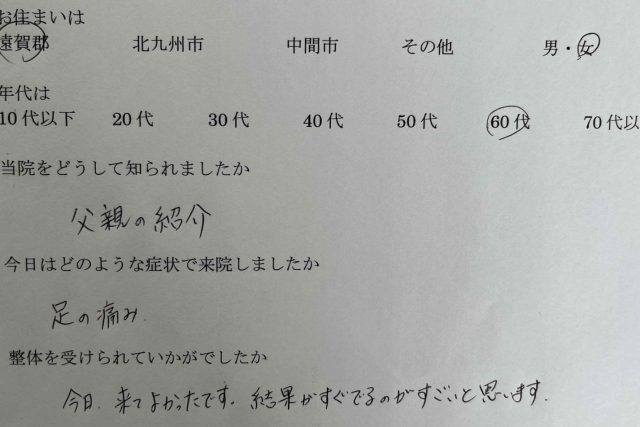 お住まいは
遠賀郡 北九州市 中間市 その他 男・女
年代は
10代以下 20代 30代 40代 50代 60代 70代以
当院をどうして知られましたか
父親の紹介
今日はどのような症状で来院しましたか
足の痛み
整体を受けられていかがでしたか
今日、来てよかったです。結果がすぐでるのがすごいと思います。